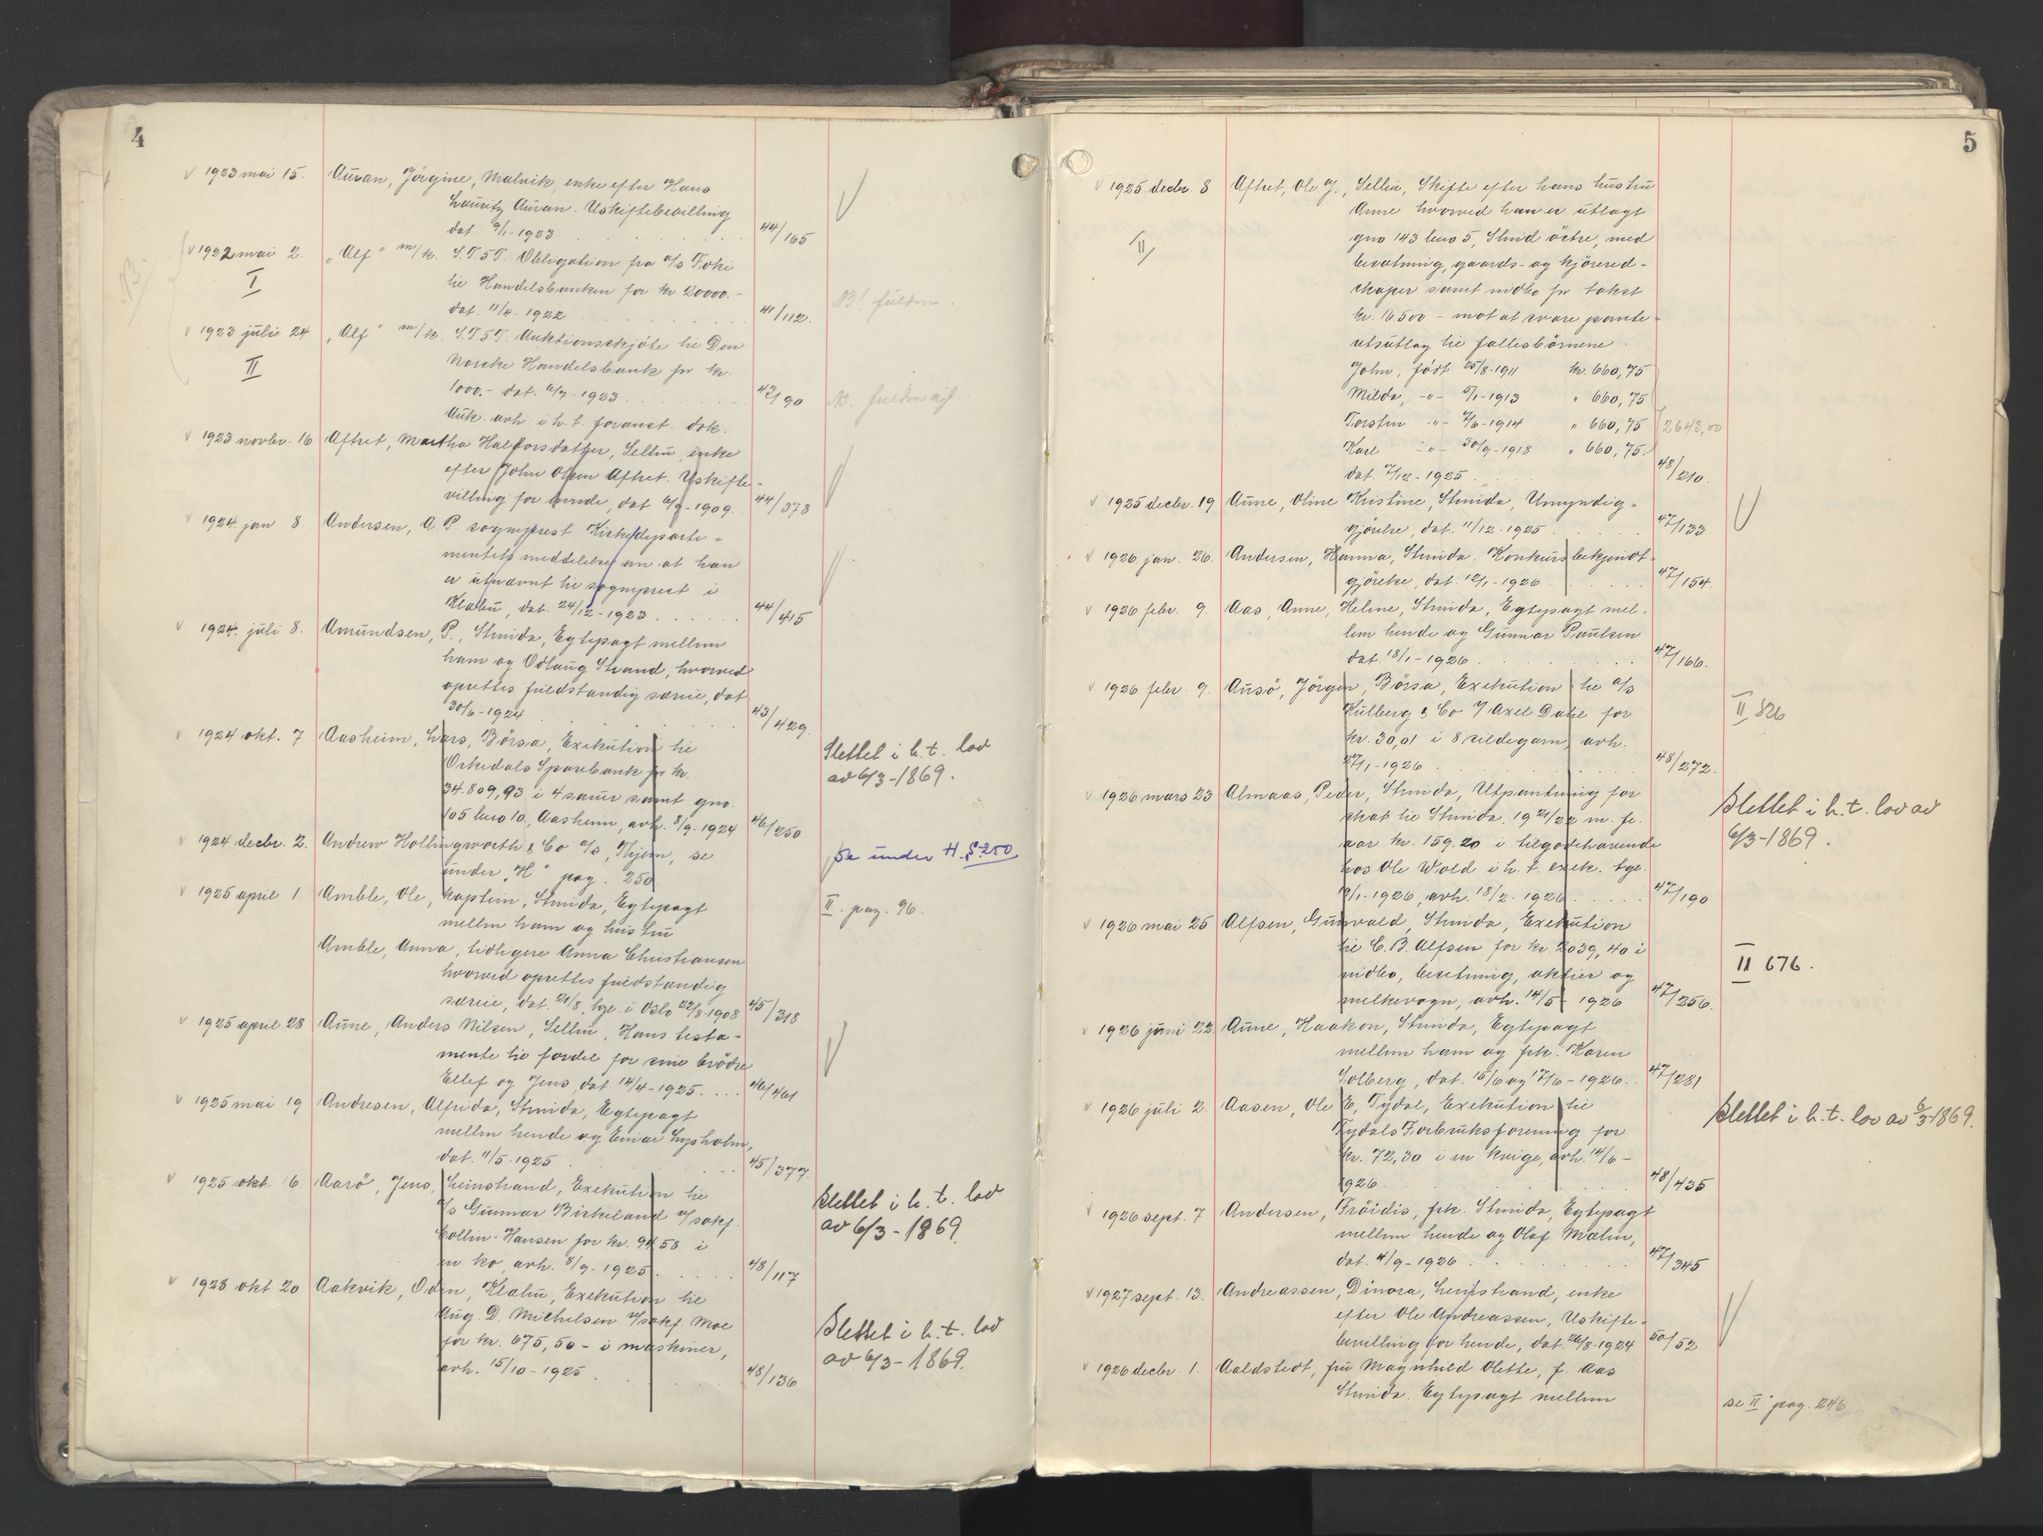 4
1923 mai 15. Auran, Jørgine, Malvik, enke efter Hans
Lauritz Auran. Uskiftebevilling
dat. 9/1-1923 44/165
1922 mai 2. "Alf" m/k. S.T.5T. Obligation fra a/s Toki
I til Handelsbanken for kr. 20000.-
dat. 11/4-1922 41/112. NB! fuldm.
1923 juli 24. "Alf" m/k. S.T.5T. Auktionsskjøte til Den
II Norske Handelsbank for kr.
1000.- dat. 6/7-1923 43/190 NB. fuldm
Auk. avh. i h. t. foranst. dok.
1923 novbr. 16 Aftret, Martha Haldorsdatter, Selbu, enke
efter John Olsen Aftret. Uskifte-
villing for hende, dat. 6/9-1909. 44/378
1924 jan 8 Andersen, A. P. sogneprest. Kirkedeparte-
mentets meddelelse om at han
er utnævnt til sogneprest i
Klæbu, dat. 24/12-1923 44/415
1924. juli 8. Amundsen, P., Strinda, Egtepagt mellem
ham og Odlaug Strand, hvorved
oprettes fuldstændig særeie, dat
30/6-1924 43/429.
1924 okt. 7 Aasheim, Lars, Børsa, Exekution til
Orkedals Sparebank for kr.
34.809,93 i 4 sauer samt gno.
105 bno 10, Aasheim, avh. 8/9-1924 46/250
Slettet i h. t. lov
av 6/3-1869.
1924 decbr. 2. Andrew Hollingworth & Co a/s, Tijem, se
under "H" pag. 250. Se under H. S. 250
1925 april 1. Amble, Ole, kaptein, Strinda, Egtepagt
mellem ham og hustru II. pag. 96.
Amble, Anna, tidligere Anna Christiansen
hvorved oprettes fuldstændig
særeie, dat. 21/8, tgl. i Oslo 22/8-1908 45/318
1925 april 28 Aune, Anders Nilsen, Selbu, Hans testa-
mente til fordel for sine brødre
Ellef og Jens, dat. 14/4-1925. 46/461
1925 mai 19 Andresen, Alfrida, Strinda, Egtepagt
mellem hende og Einar Lysholm,
dat. 11/5-1925 45/377.
1925 okt. 6 Aarö, Jens, Leinstrand, Exekution til
a/s Gunnar Birkeland v/sakf.
Collin-Hansen for kr. 94.58 i
en ko, avh. 8/9-1925. 48/117
Slettet i h. t. lov
av 6/3-1869.
1925 okt 20 Aakvik, Odin, Klæbu, Exekution til
Aug. D. Michelsen v/sakf. Moe
for kr. 675,50 - i maskiner,
avh. 15/10-1925 48/136
Slettet i h. t. lov
av 6/3-1869.
5
1925 decbr. 8 Aftret, Ole J., Selbu, Skifte efter hans hustru
Anne hvorved han er utlagt
II gno 143 bno 5, Slind östre, med
besætning, gaards- og kjøred-
skaper samt indbo for takst
kr. 16500 - mot at svare pante-
utsutlag til fællesbörnene.
John, født 25/8-1911 kr. 660,75
Milda, -"- 5/1-1913 " 660,75
Torstein -"- 7/6-1914 " 660,75 2643,00
Karl -"- 30/9-1918 " 660,75.
dat. 7/12-1925 48/210.
1925 decbr. 19 Aune, Oline Kristine, Strinda, Umyndig-
gjørelse, dat. 11/12-1925 47/133
1926 jan. 26. Andersen, Hanna, Strinda. Konkursbekjendt-
gjørelse, dat. 12/1-1926 47/154.
1926 febr. 9. Aas, Anne, Helene, Strinda, Egtepagt mel-
lem hende og Gunnar Paulsen
dat. 18/1-1926 47/166.
1926 febr. 9. Ausö, Jörgen, Börsa, Exekution til a/s
Kulberg & Co v/ Axel Dahl for
kr. 30,01 i 8 sildegarn, avh.
27/1-1926 48/272.
II 826
1926 mars 23 Almaas, Peder, Strinda, Utpantning for
skat til Strinda. 1921/22 m. fl.
aar kr. 159.20 i tilgodehavende
hos Ole Wold i h. t. exek. tgl.
19/1-1926, avh. 18/2-1926 47/190
Slettet i h. t. lov av
6/3-1869.
1926 mai 25 Alfsen, Gunvald, Strinda, Exekution
til C. B. Alfsen for kr. 2039,40 i
indbo, besetning, aktier og
melkevogn, avh. 14/5-1926 47/256.
II 676.
1926 juni 22. Aune, Haakon, Strinda, Egtepagt
mellem ham og frk. Karen
Solberg, dat. 15/6 og 17/6-1926. 47/281
1926 juli 2. Aasen, Ole E, Tydal, Exekution til
Tydals Forbruksforening for
kr. 72,30 i en kvige, avh. 14/6-
1926. 48/435
Slettet i h. t. lov av 6/3-1869.
1926 sept. 7 Andersen, Fröidis, frk. Strinda, Egtepagt
mellem hende og Olaf Mælen,
dat. 4/9-1926 47/345
1927 sept. 13. Andreassen, Dinora, Leinstrand, enke
efter Ole Andreassen, Uskifte-
bevilling for hende, dat. 26/8-1924 50/52
1926 decbr. 1. Aaldstedt, fru Magnhild Olette, f. Aas
Strinda. Egtepagt mellem
se II pag. 246